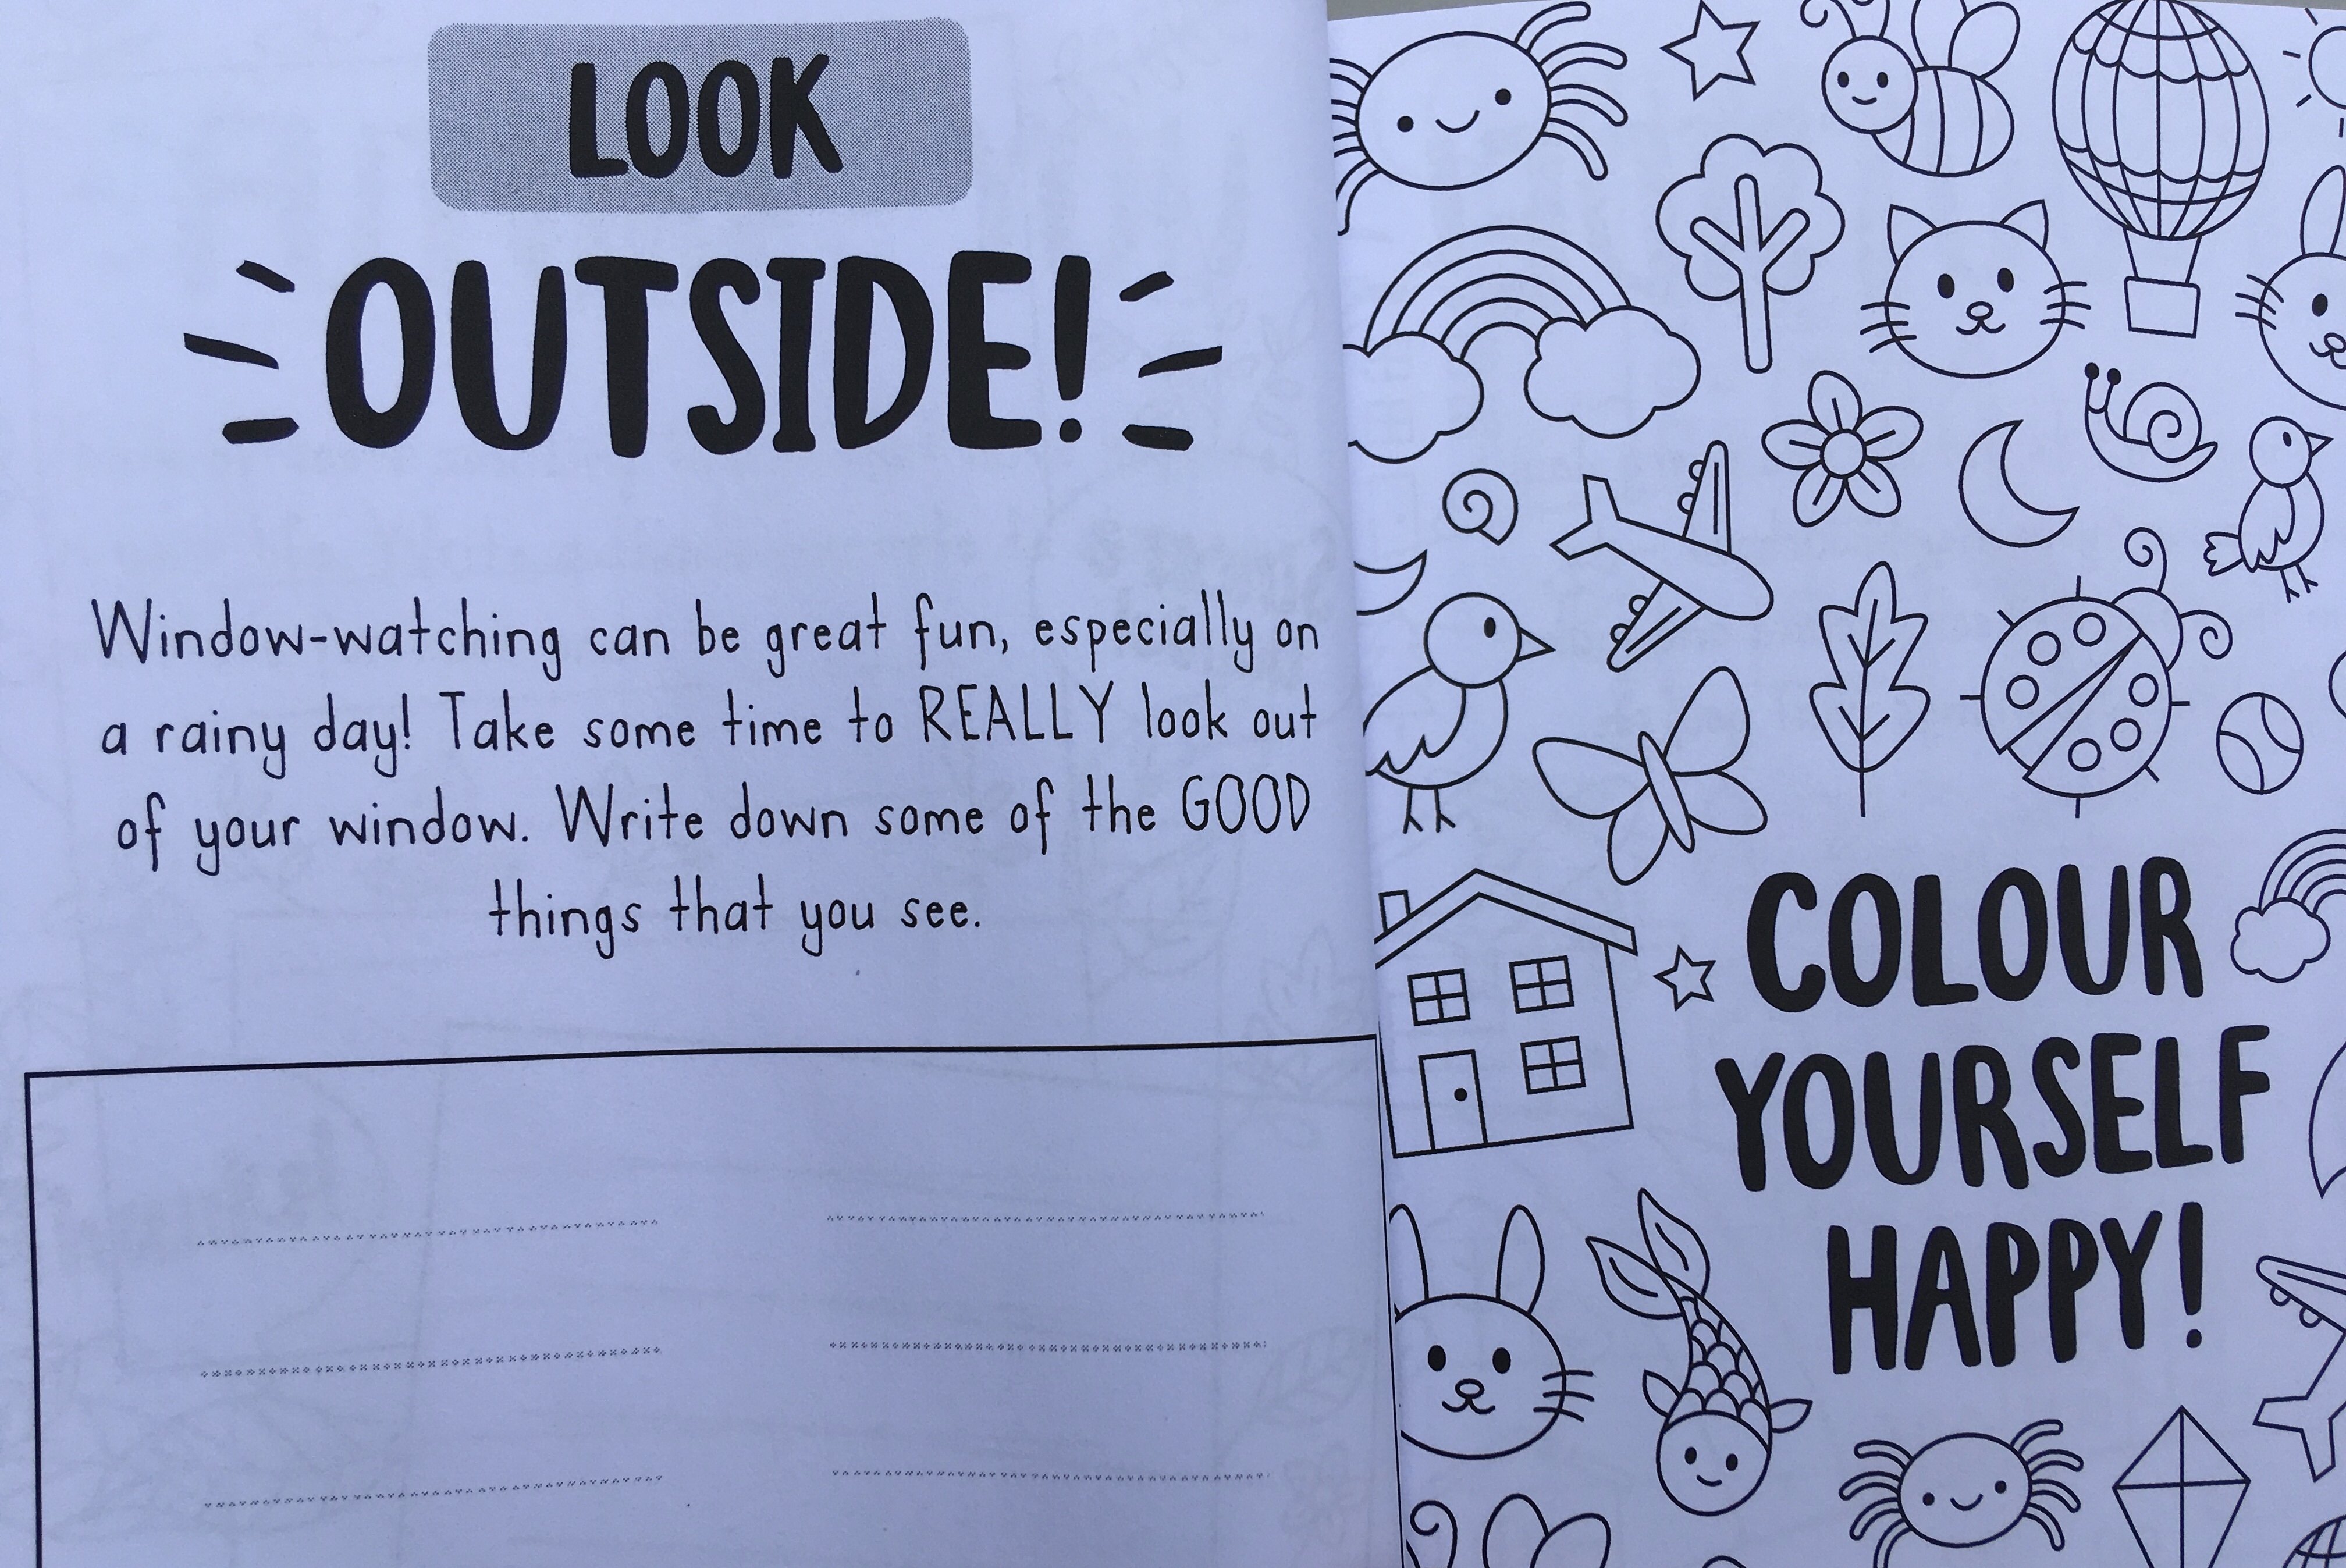 LOOK
OUTSIDE!
Window-watching can be great fun, especially on
a rainy day! Take some time to REALLY look out
of your window. Write down some of the GOOD
things that you see.
COLOUR
YOURSELF
HAPPY!